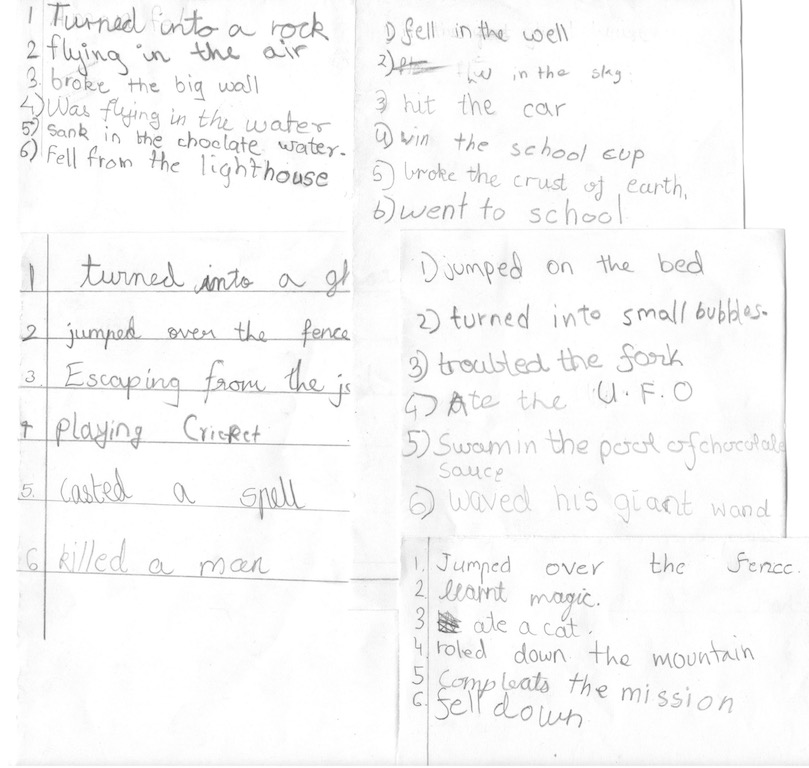 1 Turned into a rock
2 flying in the air
3. broke the big wall
4) Was flying in the water
5) Sank in the choclate water.
6) Fell from the lighthouse
1) fell in the well
2) in the
3 hit the car
4) win the school cup
5) broke the crust of earth,
6) went to school
1 turned into a
2 jumped over the fence
3. Escaping from the
4 playing Cricket
5. Casted a spell
6 killed a man
1) jumped on the bed
2) turned into small bubbles.
3) troubled the fork
4) Ate the U.F.O
5) Swam in the pool of chocolate
sauce
6) Waved his giant wand
1. Jumped over the fence.
2 learnt magic.
3 ate a cat.
4. roled down the mountain
5 Compleats the mission
6. fell down